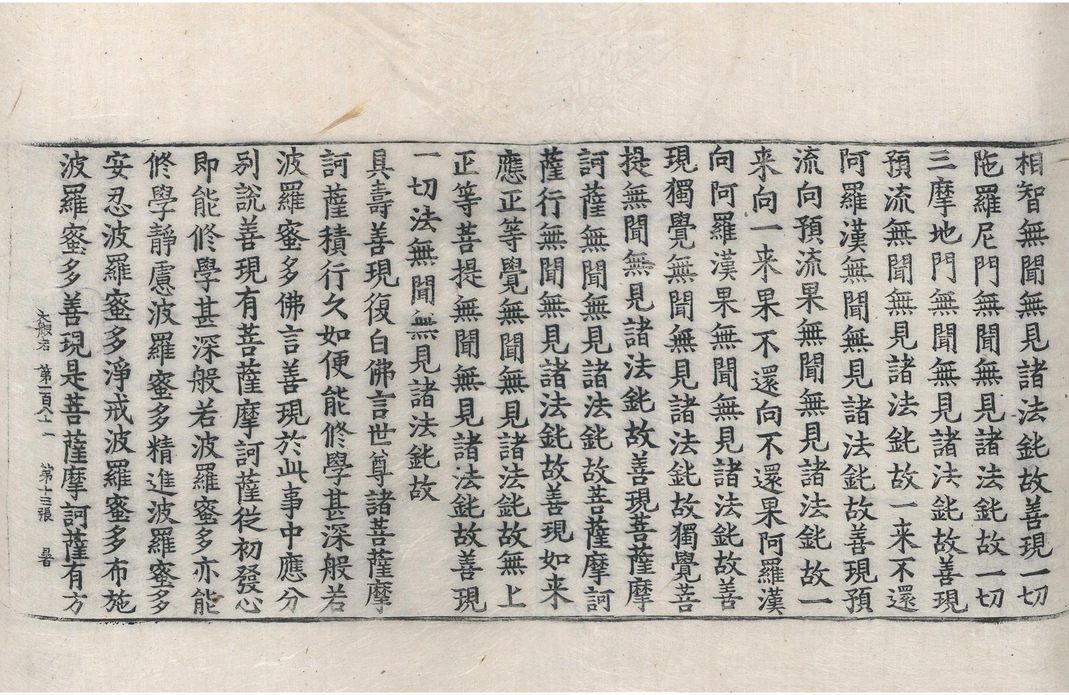 相智無聞無見諸法鈍故善現一切
陁羅尼門無聞無見諸法鈍故一切
三摩地門無聞無見諸法鈍故善現
預流無聞無見諸法鈍故一来不還
阿羅漢無聞無見諸法鈍故善現預
流向預流果無聞無見諸法鈍故一
来向一来果不還向不還果阿羅漢
向阿羅漢果無聞無見諸法鈍故善
現獨覺無聞無見諸法鈍故獨覺菩
提無聞無見諸法鈍故善現菩薩摩
訶薩無聞無見諸法鈍故菩薩摩訶
薩行無聞無見諸法鈍故善現如来
應正等覺無聞無見諸法鈍故無上
正等菩提無聞無見諸法鈍故善現
一切法無聞無見諸法鈍故
具壽善現復白佛言世尊諸菩薩摩
訶薩積行久如便能修學甚深般若
波羅蜜多佛言善現於此事中應分
別說善現有菩薩摩訶薩從初發心
即能修學甚深般若波羅蜜多亦能
修學靜慮波羅蜜多精進波羅蜜多
安忍波羅蜜多淨戒波羅蜜多布施
波羅蜜多善現是菩薩摩訶薩有方
大般若 第一百八十一 第十三張